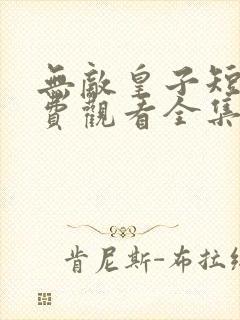 無敵皇子短
費觀看全集
肯尼斯-布拉纟